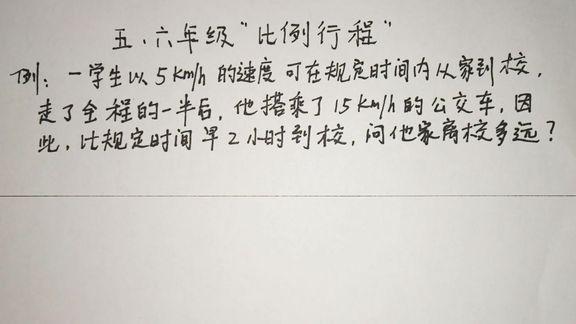 五、六年级“比例行程”
例：一学生以5km/h的速度可在规定时间内从家到校，
走了全程的一半后，他搭乘了15km/h的公交车，因
此，比规定时间早2小时到校，问他家离校多远？